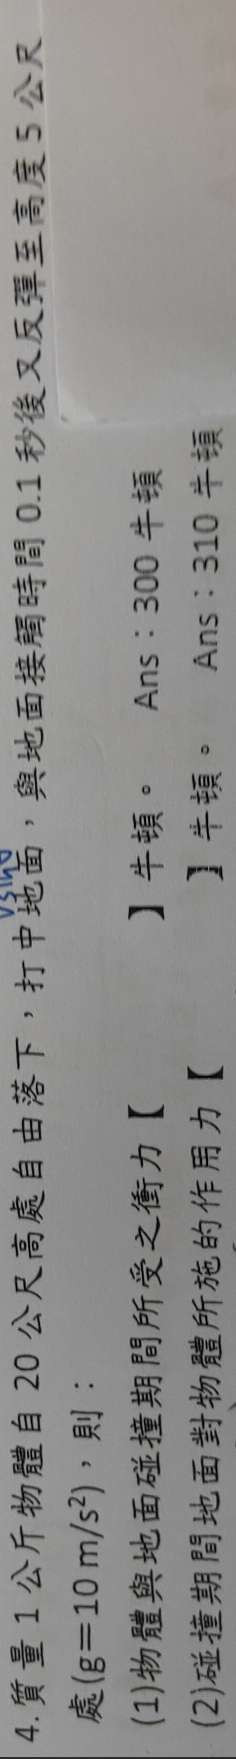 4.質量 1 公斤物體自 20 公尺高處自由落下，打中地面，與地面接觸時間 0.1 秒後又反彈至高度 5 公尺
處(g＝10 m/s²)，則：
(1)物體與地面碰撞期間所受之衝力【　　　】牛頓。　Ans：300 牛頓
(2)碰撞期間地面對物體所施的作用力【　　　】牛頓。　Ans：310 牛頓